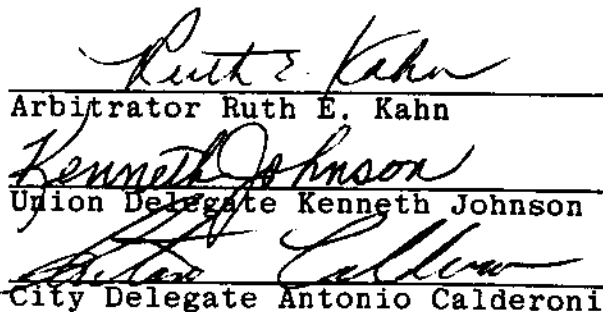 Ruth E. Kahn
Arbitrator Ruth E. Kahn
Kenneth Johnson
Union Delegate Kenneth Johnson
Antonio Calderoni
City Delegate Antonio Calderoni